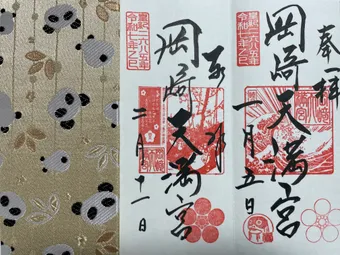 奉拝
岡崎天満宮
一月五日
皇紀二六八五年
令和七年乙巳
奉拝
岡崎天満宮
二月十一日
皇紀二六八五年
令和七年乙巳